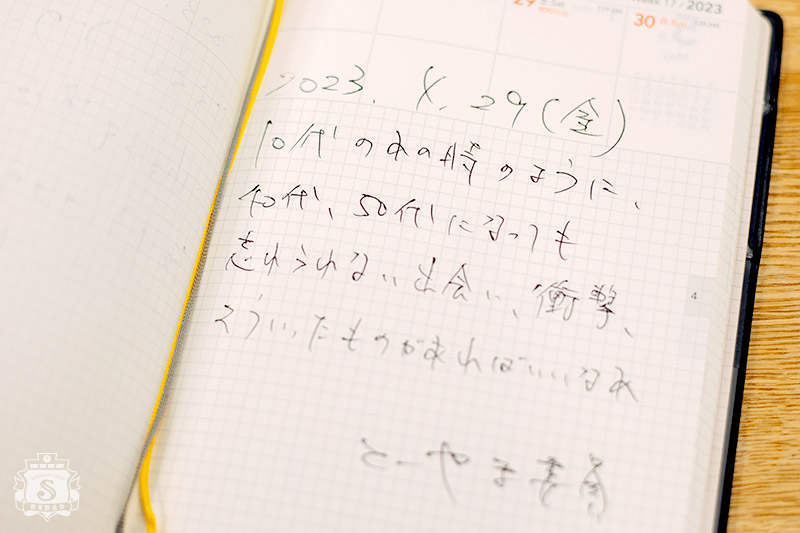 Week 17 / 2023
29 土 Sat
30 日 Sun
2023. 4. 29 (金)
10代のあの時のように、
40代、50代になっても
忘れられない出会い、衝撃、
そういったものがあればいいなあ
4
S